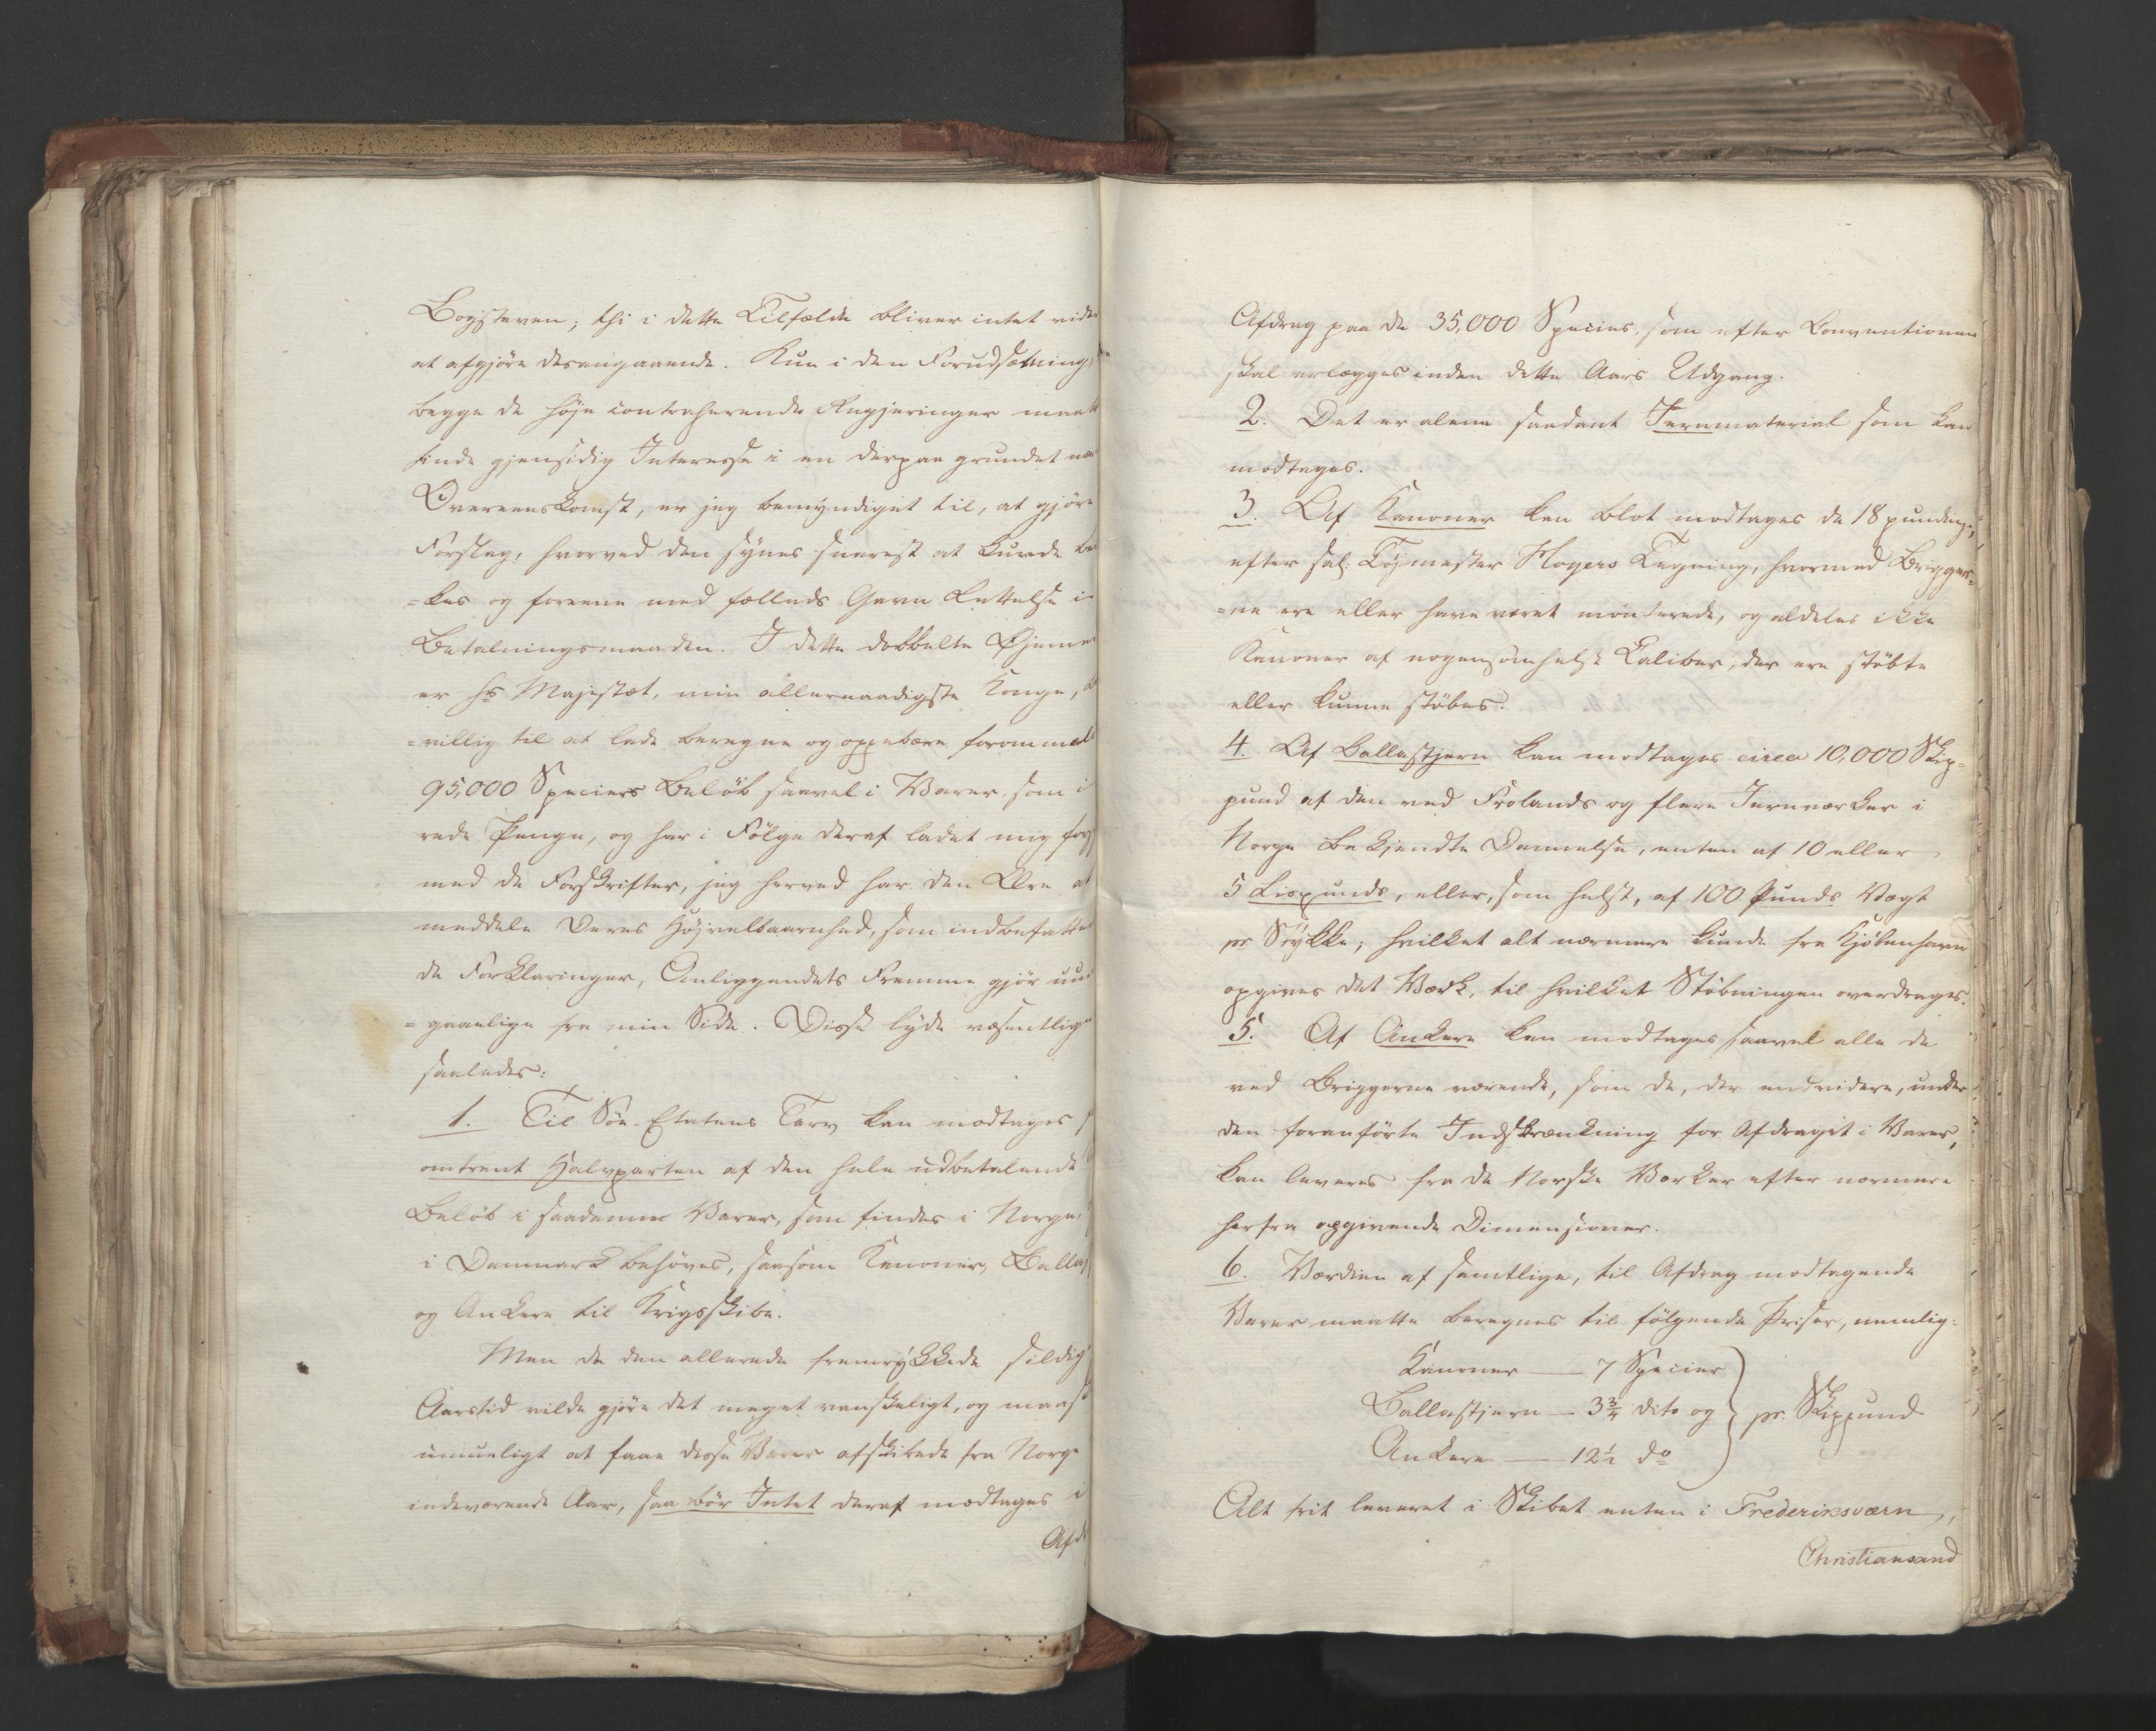 Bogstaven; thi i dette Tilfælde bliver intet vide
at afgjöre desangaaende. Kun i den Forudsætning,
begge de höje contraherende Regjeringer maat
finde gjensidig Interesse i en derpaa grundet
Overeenskomst, er jeg bemyndiget til, at gjöre
Forslag, hvorved den synes snarest at kunde
=kes og forene med fælleds Gavn Lettelse i
Betalningsmaaden. I dette dobbelte Øjeme
er Hs Majestæt, min allernaadigste Konge,
=villig til at lade beregne og oppebære forommeld
95,000 Speciers Beløb saavel i Varer, som i
rede Penge, og har i Fölge deraf ladet mig for
med de Forskrifter, jeg herved har den Ære at
meddele Deres Höjvelbaarnhed, som indbefatte
de Forklaringer, Anliggendets Fremme gjör uund
=gaaelige fra min Side. Disse lyde væsentlig
saaledes:
1. Til Söe-Etatens Tarv kan modtages
omtrent Halvparten af den hele udbetalende
Belöb i saadanne Varer, som findes i Norge,
i Danmark behöves, saasom Kanoner, Ballas
og Ankere til Krigsskibe.
Men da den allerede fremrykkede sildig
Aarstid vilde gjöre det meget vanskeligt, og maas
umueligt at faae disse Varer afskibede fra Norge
indeværende Aar, saa bör Intet deraf modtages i
Afd
Afdrag paa de 35,000 Species, som efter Conventionen
skal erlægges inden dette Aars Udgang.
2. Det er alene saadant Jernmaterial som kan
modtages.
3. Af Kanoner kan blot modtages de 18 pundige,
efter sal: Töjmester Hoyers Tegning, hvormed Brigger=
=ne ere eller have været monterede, og aldeles ikke
Kanoner af nogensomhelst Caliber, der ere stöbte
eller kunne stöbes.
4. Af Ballastjern kan modtages circa 10,000 Skip=
pund af den ved Frolands og flere Jernværker i
Norge bekjendte Dannelse, enten af 10 eller
5 Lispunds, eller, som helst, af 100 Punds Vægt
pr Stykke; hvilket alt nærmere kunde fra Kjöbenhavn
opgives det Værk, til hvilket Stöbningen overdrages.
5. Af Ankere kan modtages saavel alle de
ved Briggerne værende, som de, der endvidere, under
den foranförte Indskrænkning for Afdraget i Varer,
kan leveres fra de Norske Værker efter nærmere
herfra opgivende Dimensioner.
6. Værdien af samtlige, til Afdrag modtagende
Varer maatte beregnes til fölgende Priser, nemlig:
Kanoner — 7 Species
Ballastjern — 3¾ dito og } pr. Skippund
Ankere — 12½ do
Alt frit leveret i Skibet enten i Frederiksværn,
Christiansand